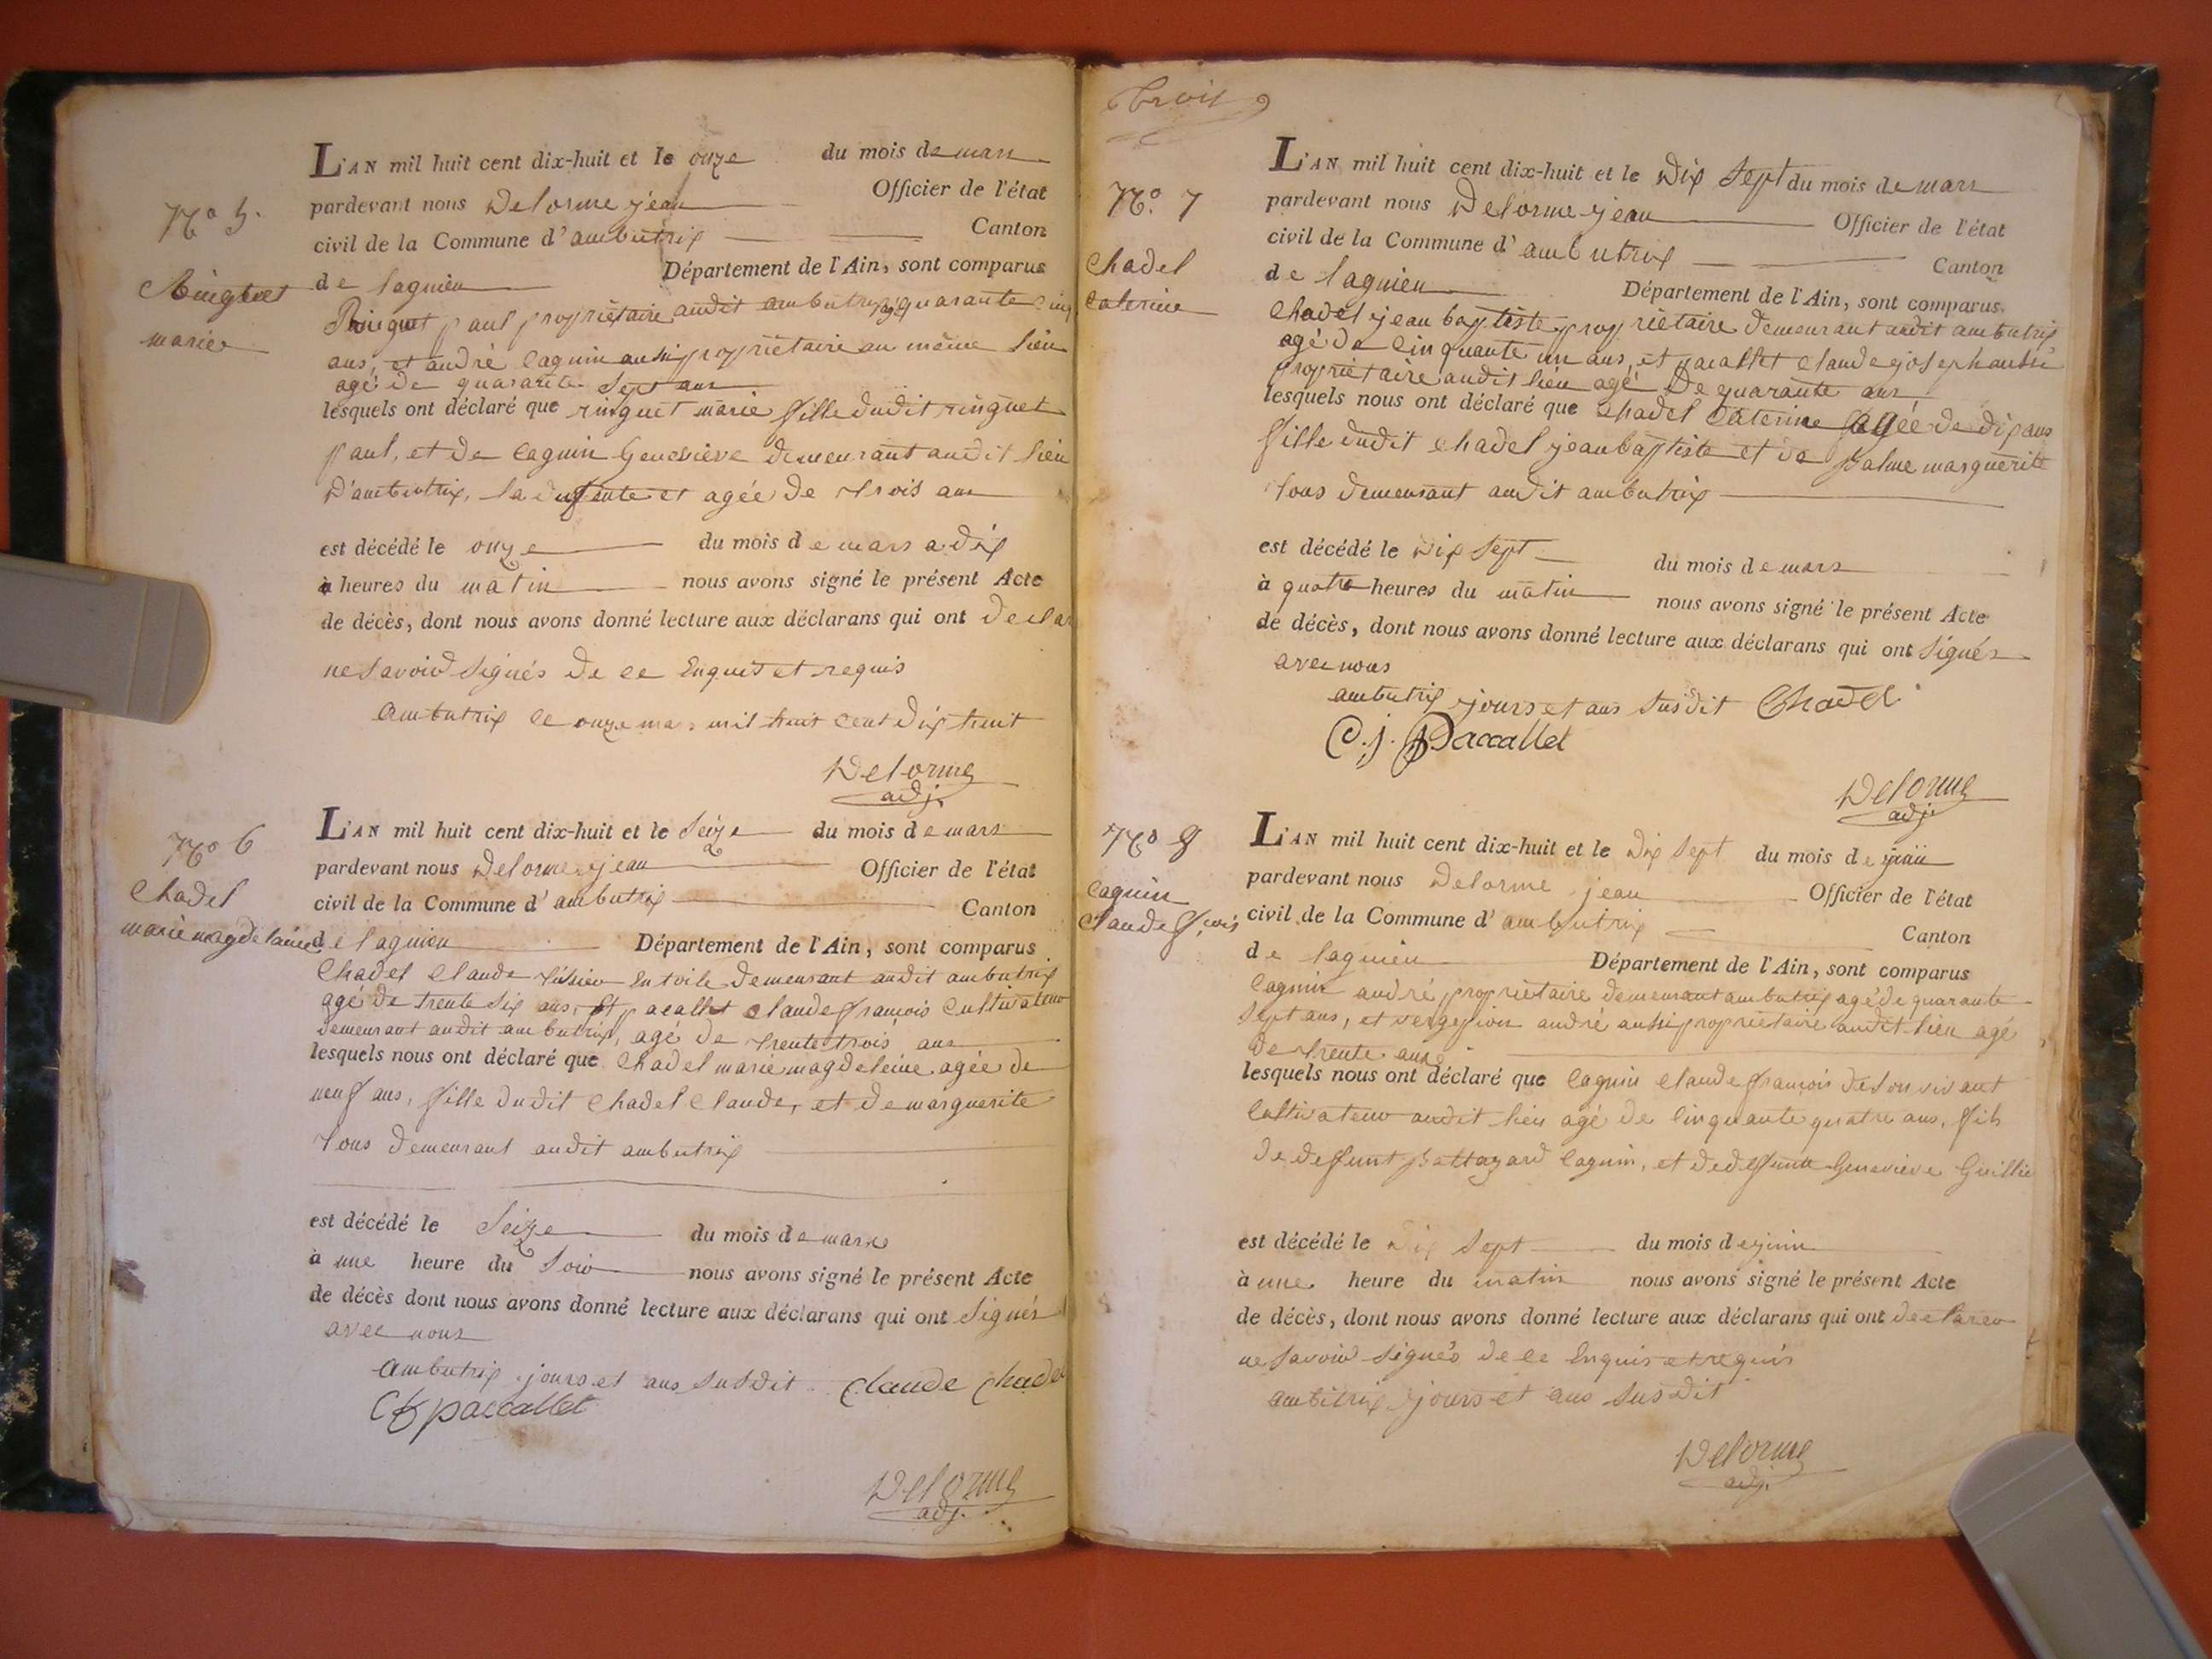 L'AN mil huit cent dix-huit et le onze du mois de mars
pardevant nous Delorme jean Officier de l'état
civil de la Commune d'ambutrix Canton
de lagnieu Département de l'Ain, sont comparus
N.o 5.
Ringuet
marie
Ringuet paul propriétaire audit ambutrix agé quarante cinq
ans, et andré cagnin aussi propriétaire au même lieu
agé de quarante sept ans
lesquels ont déclaré que ringuet marie fille dudit ringuet
paul, et de cagnin Geneviève demeurant audit lieu
d'ambutrix, la agée de trois ans
est décédé le onze du mois de mars a dix
à heures du matin nous avons signé le présent Acte
de décès, dont nous avons donné lecture aux déclarans qui ont
ne savoir signés de ce Enquis et requis
ambutrix le onze mars mil huit cent dix huit
Delorme
adj.
N.o 6
Chadel
marie magdelaine
L'AN mil huit cent dix-huit et le Seize du mois de mars
pardevant nous Delorme jean Officier de l'état
civil de la Commune d'ambutrix Canton
de lagnieu Département de l'Ain, sont comparus
Chadel Claude tissier en toile demeurant audit ambutrix
agé de trente six ans, et pacallet Claude françois Cultivateur
demeurant audit ambutrix, agé de trente trois ans
lesquels nous ont déclaré que Chadel marie magdeleine agée de
neuf ans, fille dudit Chadel Claude, et de marguerite
tous demeurant audit ambutrix
est décédé le Seize du mois de mars
à une heure du Soir nous avons signé le présent Acte
de décès dont nous avons donné lecture aux déclarans qui ont signés
avec nous
Ambutrix jours et ans susdit Claude Chadel
Cf paccallet
Delorme
adj.
Trois
N.o 7
Chadel
Caterine
L'AN mil huit cent dix-huit et le Dix Sept du mois de mars
pardevant nous Delorme jean Officier de l'état
civil de la Commune d'ambutrix Canton
de lagnieu Département de l'Ain, sont comparus
Chadel jean baptiste propriétaire demeurant audit ambutrix
agé de cinquante un ans, et pacallet Claude joseph aussi
propriétaire audit lieu agé De quarante ans
lesquels nous ont déclaré que Chadel Caterine agée de dix ans
fille dudit Chadel jean baptiste et de Balme marguerite
tous demeurant audit ambutrix
est décédé le Dix Sept du mois de mars
à quatre heures du matin nous avons signé le présent Acte
de décès, dont nous avons donné lecture aux déclarans qui ont signés
avec nous
ambutrix jours et ans susdit Chadel
C. j. Paccallet
Delorme
adj.
N.o 8
Cagnin
Claude f.çois
L'AN mil huit cent dix-huit et le Dix Sept du mois de
pardevant nous Delorme jean Officier de l'état
civil de la Commune d'ambutrix Canton
de lagnieu Département de l'Ain, sont comparus
Cagnin andré, propriétaire demeurant ambutrix agé de quarante
Sept ans, et andré aussi propriétaire audit lieu agé
de trente ans
lesquels nous ont déclaré que Cagnin Claude françois de son vivant
Cultivateur audit lieu agé de Cinquante quatre ans, fils
de deffunt Baltazard Cagnin, et de deffunte Geneviève
est décédé le Dix Sept du mois de juin
à une heure du matin nous avons signé le présent Acte
de décès, dont nous avons donné lecture aux déclarans qui ont declarer
ne savoir signés de ce Enquis et requis
ambutrix jours et ans susdit
Delorme
adj.